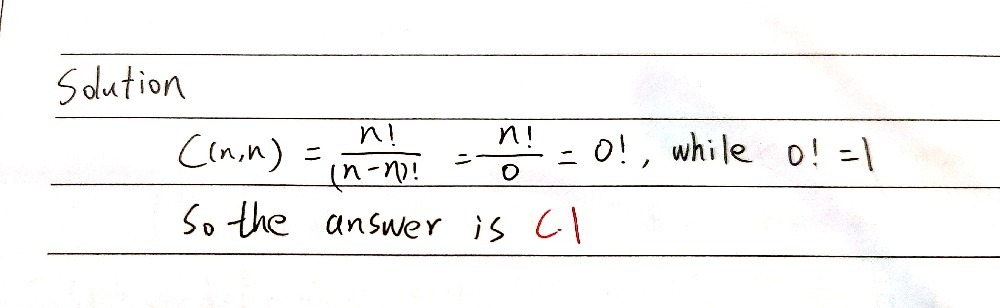 Solution
C(n,n) = n!/(n-n)! = n!/0 = 0!, while 0! = 1
So the answer is C1